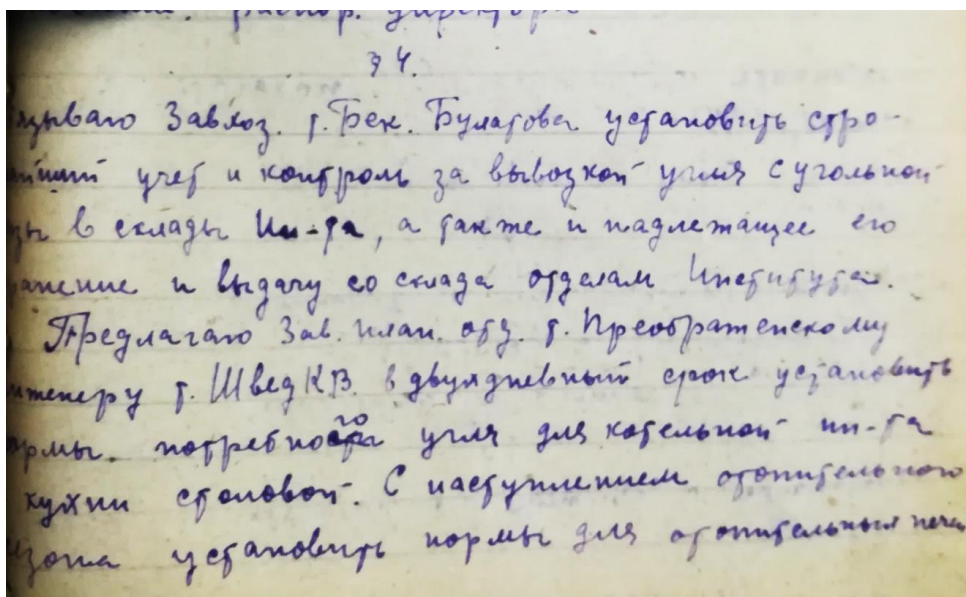 распор. директора
§ 4.
язываю Завхоз. т. Бек. Булатова установить стро-
жайший учет и контроль за вывозкой угля с угольной
зы в склады Ин-та, а также и надлежащее его
ражение и выдачу со склада отделам Института.
Предлагаю Зав. план. отд. т. Преображенскому
инженеру т. Швед К.В. в двухдневный срок установить
ормы. потребного угля для котельной ин-та
кухни столовой. С наступлением отопительного
езона установить нормы для отопительных печей